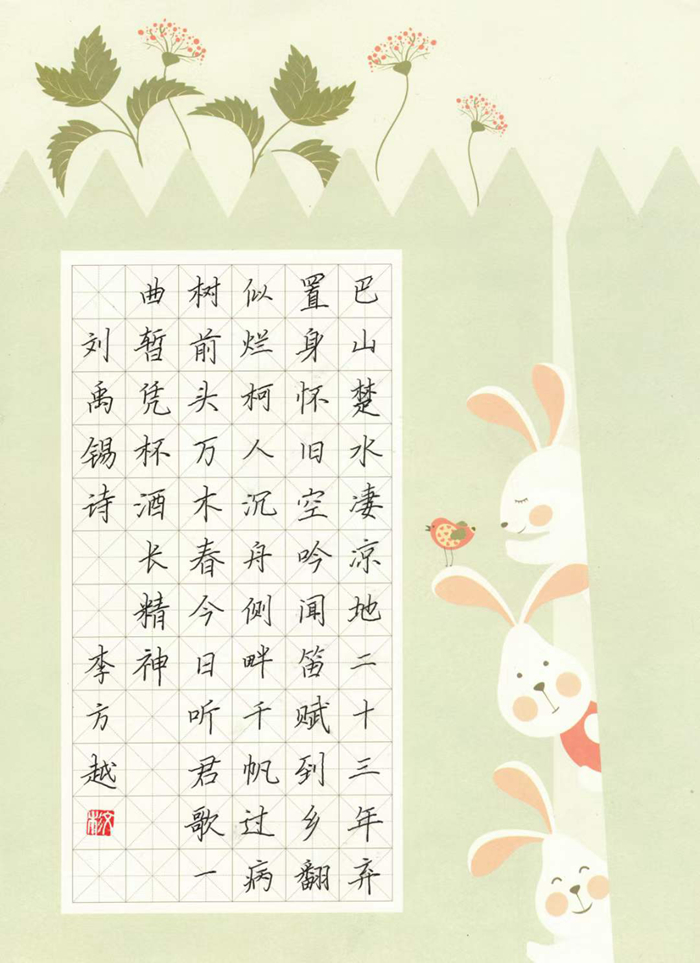 巴山楚水凄凉地二十三年弃
置身怀旧空吟闻笛赋到乡翻
似烂柯人沉舟侧畔千帆过病
树前头万木春今日听君歌一
曲暂凭杯酒长精神
刘禹锡诗 李方越